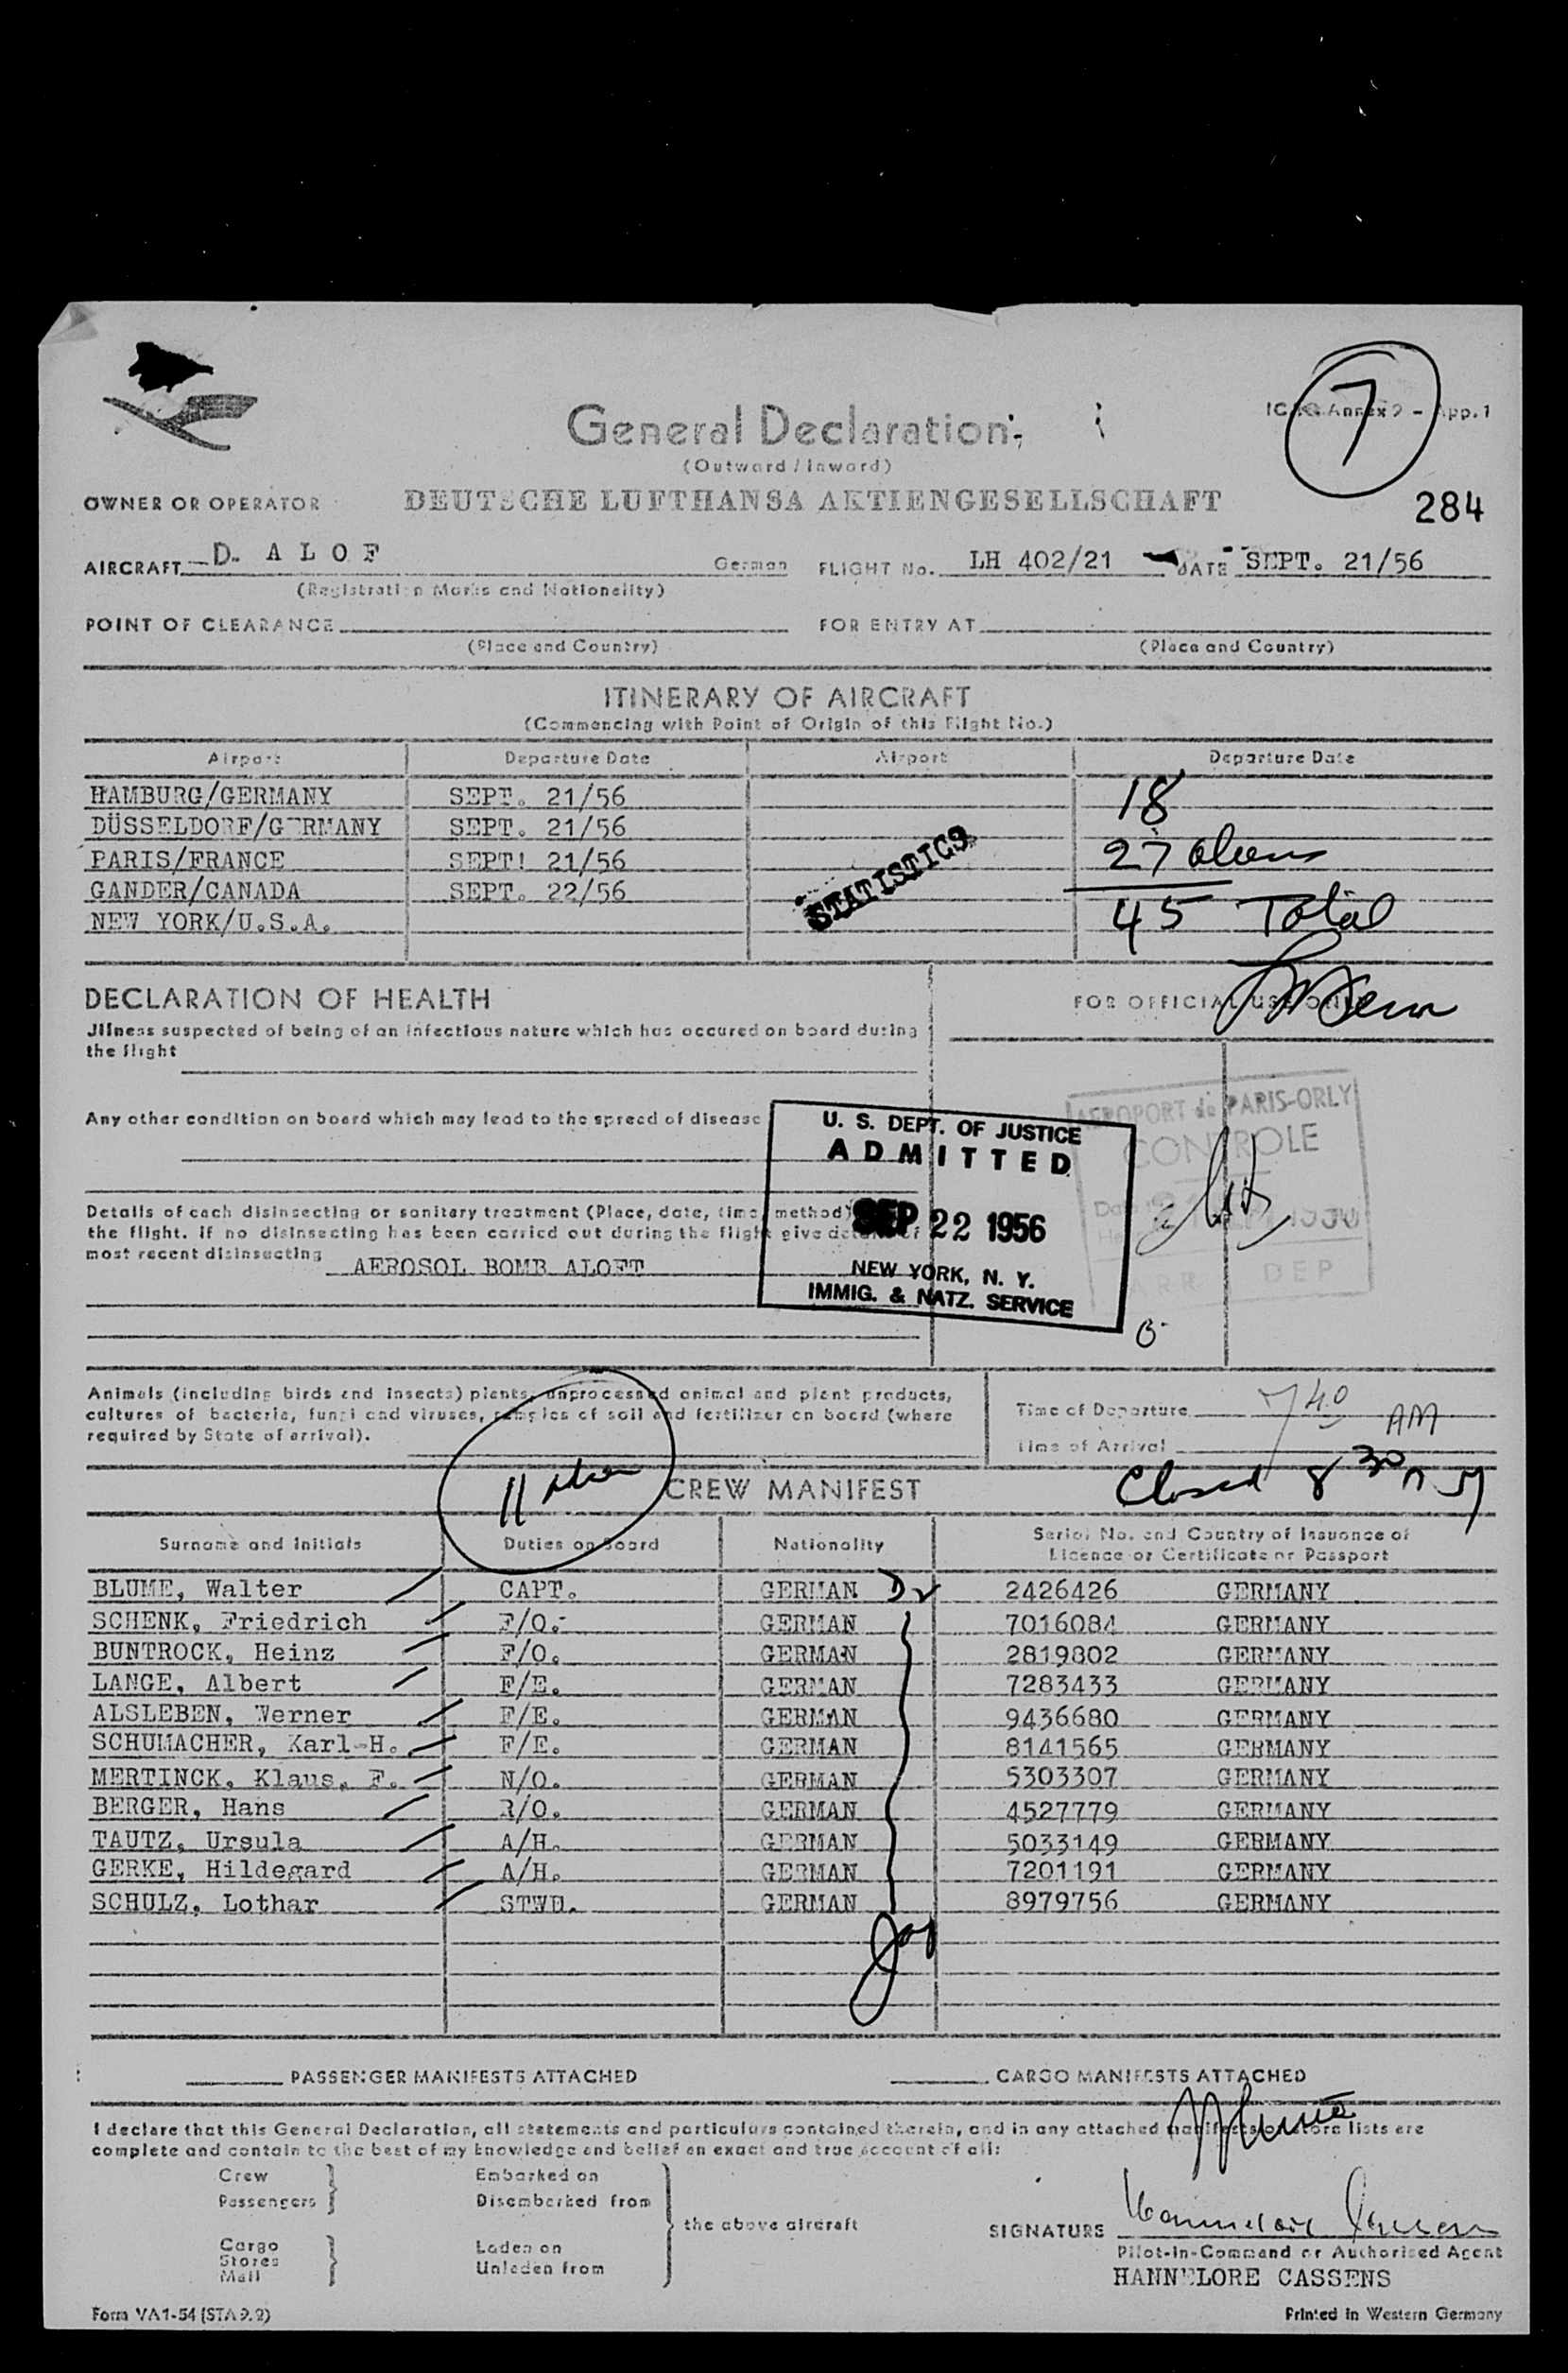 General Declaration
ICAO Annex 9 - App. 1
7
(Outward / Inward)
OWNER OR OPERATOR DEUTSCHE LUFTHANSA AKTIENGESELLSCHAFT
284
AIRCRAFT D- A L O F German FLIGHT No. LH 402/21 DATE SEPT. 21/56
(Registration Marks and Nationality)
POINT OF CLEARANCE FOR ENTRY AT
(Place and Country) (Place and Country)
ITINERARY OF AIRCRAFT
(Commencing with Point of Origin of this Flight No.)
Airport Departure Date Airport Departure Date
HAMBURG/GERMANY SEPT. 21/56 18
DÜSSELDORF/GERMANY SEPT. 21/56 27 aliens
PARIS/FRANCE SEPT! 21/56 STATISTICS
GANDER/CANADA SEPT. 22/56 45 Total
NEW YORK/U.S.A.
DECLARATION OF HEALTH FOR OFFICIAL USE ONLY
Jllness suspected of being of an infectious nature which has occured on board during
the flight
AEROPORT de PARIS-ORLY
CONTROLE
ARR DEP
Any other condition on board which may lead to the spread of disease
U. S. DEPT. OF JUSTICE
ADMITTED
SEP 22 1956
NEW YORK, N. Y.
IMMIG. & NATZ. SERVICE
Details of each disinsecting or sanitary treatment (Place, date, time, method)
the flight. If no disinsecting has been carried out during the flight give details of
most recent disinsecting AEROSOL BOMB ALOFT
Animals (including birds and insects) plants, unprocessed animal and plant products,
cultures of bacteria, fungi and viruses, samples of soil and fertilizer on board (where
required by State of arrival).
Time of Departure 7 40 AM
Time of Arrival
Closed 8 30 AM
11
CREW MANIFEST
Surname and Initials Duties on Board Nationality Serial No. and Country of Issuance of
Licence or Certificate or Passport
BLUME, Walter CAPT. GERMAN 2426426 GERMANY
SCHENK, Friedrich F/O. GERMAN 7016084 GERMANY
BUNTROCK, Heinz F/O. GERMAN 2819802 GERMANY
LANGE, Albert F/E. GERMAN 7283433 GERMANY
ALSLEBEN, Werner F/E. GERMAN 9436680 GERMANY
SCHUMACHER, Karl-H. F/E. GERMAN 8141565 GERMANY
MERTINCK, Klaus, F. N/O. GERMAN 5303307 GERMANY
BERGER, Hans R/O. GERMAN 4527779 GERMANY
TAUTZ, Ursula A/H. GERMAN 5033149 GERMANY
GERKE, Hildegard A/H. GERMAN 7201191 GERMANY
SCHULZ, Lothar STWD. GERMAN 8979756 GERMANY
PASSENGER MANIFESTS ATTACHED CARGO MANIFESTS ATTACHED
I declare that this General Declaration, all statements and particulars contained therein, and in any attached manifests or store lists are
complete and contain to the best of my knowledge and belief an exact and true account of all:
Crew Embarked on
Passengers Disembarked from
the above aircraft
Cargo Laden on
Stores Unladen from
Mail
SIGNATURE Hannelore Cassens
Pilot-in-Command or Authorised Agent
HANNELORE CASSENS
Form VA1-54 (STA 9.2) Printed in Western Germany